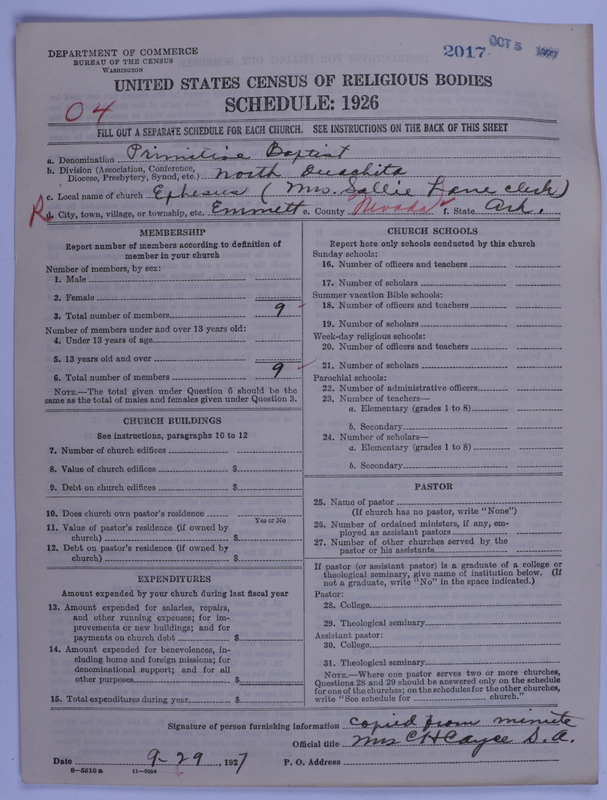 DEPARTMENT OF COMMERCE
BUREAU OF THE CENSUS
WASHINGTON
2017 OCT 5 1927
UNITED STATES CENSUS OF RELIGIOUS BODIES
SCHEDULE: 1926
04
FILL OUT A SEPARATE SCHEDULE FOR EACH CHURCH. SEE INSTRUCTIONS ON THE BACK OF THIS SHEET
a. Denomination Primitive Baptist
b. Division (Association, Conference, Diocese, Presbytery, Synod, etc.) North Ouachita
c. Local name of church Ephesus (Mrs. Sallie Lane clerk)
R d. City, town, village, or township, etc. Emmett e. County Nevada f. State Ark.
MEMBERSHIP
Report number of members according to definition of
member in your church
Number of members, by sex:
1. Male
2. Female
3. Total number of members 9
Number of members under and over 13 years old:
4. Under 13 years of age
5. 13 years old and over
6. Total number of members 9
NOTE.—The total given under Question 6 should be the
same as the total of males and females given under Question 3.
CHURCH BUILDINGS
See instructions, paragraphs 10 to 12
7. Number of church edifices
8. Value of church edifices $
9. Debt on church edifices $
10. Does church own pastor's residence
Yes or No
11. Value of pastor's residence (if owned by
church) $
12. Debt on pastor's residence (if owned by
church) $
EXPENDITURES
Amount expended by your church during last fiscal year
13. Amount expended for salaries, repairs,
and other running expenses; for im-
provements or new buildings; and for
payments on church debt $
14. Amount expended for benevolences, in-
cluding home and foreign missions; for
denominational support; and for all
other purposes $
15. Total expenditures during year $
CHURCH SCHOOLS
Report here only schools conducted by this church
Sunday schools:
16. Number of officers and teachers
17. Number of scholars
Summer vacation Bible schools:
18. Number of officers and teachers
19. Number of scholars
Week-day religious schools:
20. Number of officers and teachers
21. Number of scholars
Parochial schools:
22. Number of administrative officers
23. Number of teachers—
a. Elementary (grades 1 to 8)
b. Secondary
24. Number of scholars—
a. Elementary (grades 1 to 8)
b. Secondary
PASTOR
25. Name of pastor
(If church has no pastor, write "None")
26. Number of ordained ministers, if any, em-
ployed as assistant pastors
27. Number of other churches served by the
pastor or his assistants
If pastor (or assistant pastor) is a graduate of a college or
theological seminary, give name of institution below. (If
not a graduate, write "No" in the space indicated.)
Pastor:
28. College
29. Theological seminary
Assistant pastor:
30. College
31. Theological seminary
NOTE.—Where one pastor serves two or more churches,
Questions 28 and 29 should be answered only on the schedule
for one of the churches; on the schedules for the other churches,
write "See schedule for church."
Signature of person furnishing information copied from minute
Official title Mrs C H Cayce S. A.
Date 9-29, 1927 P. O. Address
8—5518 a 11—9264